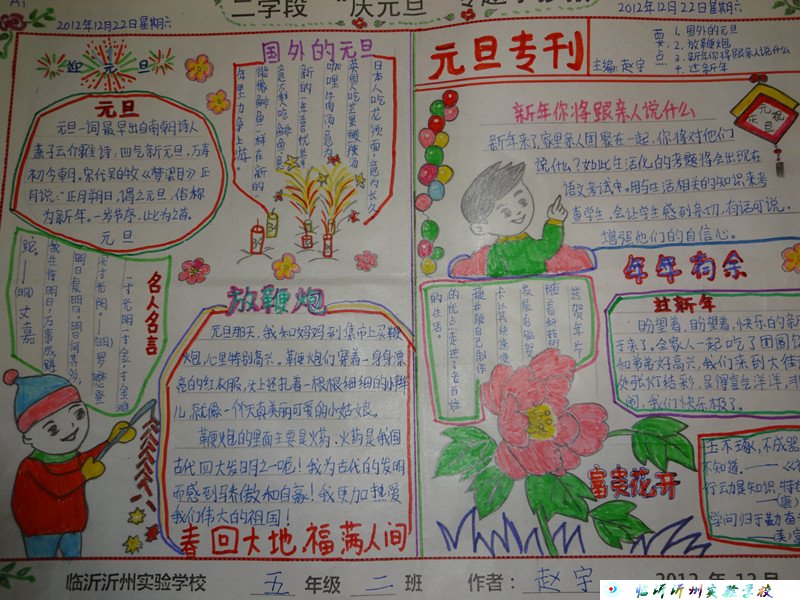 2012年12月22日星期六
2012年12月22日星期六
迎元旦
元旦
元旦一词最早出自南朝诗人
萧子云介雅诗:四气新元旦,万寿
初今朝。宋代吴自牧《梦粱目》正
月说:“正月朔日,谓之元旦,俗称
为新年。一岁节序,此为之首。
元旦
国外的元旦
日本人吃龙须面,意为长久
咖哩牛肉汤,意为
新的一年喜忧兼
意大利吃鲱鱼,意
能像鲱鱼一样在新的
年里力争上游。
元旦专刊
主编:赵宇
要点
1.国外的元旦
2.放鞭炮
3.新年你将跟亲人说什么
4.过新年
庆元旦
新年你将跟亲人说什么
新年来了,家里亲人团聚在一起,你将对他们
说什么?如此生活化的考题将会出现在
语文考试中。用与生活相关的知识来考
查学生,会让学生感到亲切,有话可说,
增强他们的自信心。
名人名言
一寸光阴一寸金,寸金难
买寸光阴。
放鞭炮
元旦那天,我和妈妈到集市上买鞭
炮,心里特别高兴。鞭炮们穿着一身身漂
亮的红衣服,头上还扎着一根根细细的小辫
儿,就像一个个天真美丽可爱的小姑娘。
鞭炮的里面主要是火药,火药是我国
古代四大发明之一呢!我为古代的发明
而感到骄傲和自豪!我更加热爱
我们伟大的祖国!
春回大地,福满人间
贺年片
的生活。
年年有余
过新年
盼望着,盼望着,快乐的新
于来了。全家人一起吃了团圆饭
我们来到大街
处张灯结彩,显得喜气洋洋,
炮,我们快乐极了。
富贵花开
玉不琢,不成器
不知道。
临沂沂州实验学校
五年级二班
作者:赵宇
2012年12月
临沂沂州实验学校